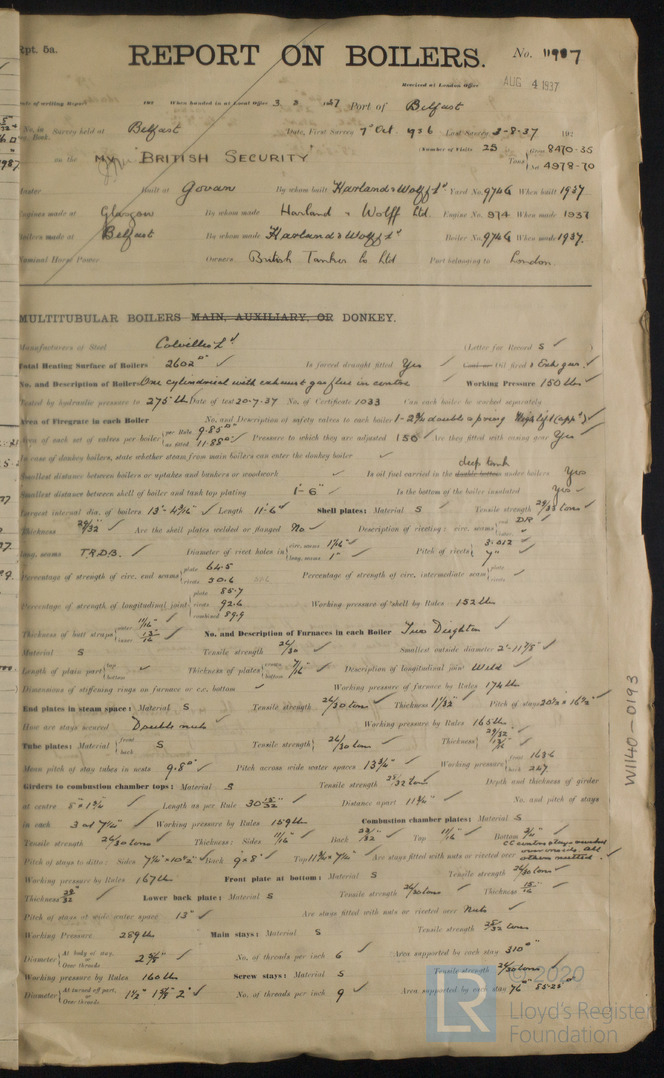 Rpt. 5a.
REPORT ON BOILERS.
No. 11987
Received at London Office AUG 4 1937
Date of writing Report 192 When handed in at Local Office 3. 8. 1937 Port of Belfast
No. in Reg. Book. Survey held at Belfast Date, First Survey 7 Oct 1936 Last Survey 3-8-37 192
on the MV 'BRITISH SECURITY' (Number of Visits 25 ) Tons Gross 8470.35 Net 4978.70
Master Built at Govan By whom built Harland & Wolff Ld Yard No. 974G When built 1937
Engines made at Glasgow By whom made Harland & Wolff Ltd. Engine No. 974 When made 1937
Boilers made at Belfast By whom made Harland & Wolff Ld Boiler No. 974G When made 1937.
Nominal Horse Power Owners British Tanker Co Ltd Port belonging to London.
MULTITUBULAR BOILERS MAIN, AUXILIARY, OR DONKEY.
Manufacturers of Steel Colvilles Ld (Letter for Record S )
Total Heating Surface of Boilers 2602 □" Is forced draught fitted Yes Coal or Oil fired & Exh gas.
No. and Description of Boilers One cylindrical with exhaust gas flue in centre Working Pressure 150 lbs
Tested by hydraulic pressure to 275 lb Date of test 20-7-37 No. of Certificate 1033 Can each boiler be worked separately
Area of Firegrate in each Boiler No. and Description of safety valves to each boiler 1-2¾ double spring High lift (app'd)
Area of each set of valves per boiler per Rule 9.85 □" as fitted 11.88 □" Pressure to which they are adjusted 150 Are they fitted with easing gear Yes
In case of donkey boilers, state whether steam from main boilers can enter the donkey boiler
Smallest distance between boilers or uptakes and bunkers or woodwork Is oil fuel carried in the double bottom deep tank under boilers Yes
Smallest distance between shell of boiler and tank top plating 1'-6" Is the bottom of the boiler insulated Yes
Largest internal dia. of boilers Length 11'-6" Shell plates: Material S Tensile strength 29/33 tons
Thickness 29/32" Are the shell plates welded or flanged No Description of riveting: circ. seams end DR inter.
long. seams T.R.D.B. Diameter of rivet holes in circ. seams 1 1/16" long. seams 1" Pitch of rivets 3.012" 7"
Percentage of strength of circ. end seams plate 64.5 rivets 50.6 Percentage of strength of circ. intermediate seam plate rivets
Percentage of strength of longitudinal joint plate 85.7 rivets 92.6 combined 89.9 Working pressure of shell by Rules 152 lbs
Thickness of butt straps outer 11/16" inner 13/16" No. and Description of Furnaces in each Boiler Two Deighton
Material S Tensile strength 26/30 Smallest outside diameter 2'-11⅞"
Length of plain part top bottom Thickness of plates crown bottom 7/16" Description of longitudinal joint Weld
Dimensions of stiffening rings on furnace or c.c. bottom Working pressure of furnace by Rules 174 lb
End plates in steam space: Material S Tensile strength 26/30 tons Thickness 11/32" Pitch of stays 20½ × 16½"
How are stays secured Double nuts Working pressure by Rules 165 lb
Tube plates: Material front back S Tensile strength 26/30 tons Thickness 29/32" 13/16
Mean pitch of stay tubes in nests 9.8" Pitch across wide water spaces 13¾" Working pressure front 163 back 247
Girders to combustion chamber tops: Material S Tensile strength 28/32 tons Depth and thickness of girder
at centre 8" × 1¾" Length as per Rule 30 15/32" Distance apart 11¾" No. and pitch of stays
in each 3 at 7¼" Working pressure by Rules 159 lb Combustion chamber plates: Material S
Tensile strength 26/30 tons Thickness: Sides 11/16" Back 23/32" Top 11/16" Bottom ¾"
Pitch of stays to ditto: Sides 7¼" × 10½" Back 9" × 8" Top 11¾ × 7¼" Are stays fitted with nuts or riveted over CC centre stays riveted over others nutted.
Working pressure by Rules 167 lb Front plate at bottom: Material S Tensile strength 26/30 tons
Thickness Lower back plate: Material S Tensile strength 26/30 tons Thickness
Pitch of stays at wide water space 13" Are stays fitted with nuts or riveted over Nuts
Working Pressure 289 lb Main stays: Material S Tensile strength 28/32 tons
Diameter At body of stay, or Over threads 2⅝" No. of threads per inch 6 Area supported by each stay 310 □"
Working pressure by Rules 160 lb Screw stays: Material S Tensile strength 26/30 tons
Diameter At turned off part, or Over threads 1½" 1⅝" 2" No. of threads per inch 9 Area supported by each stay 76 □" 85.25 □"
W1140-0193
© 2020
LR
Lloyd's Register
Foundation